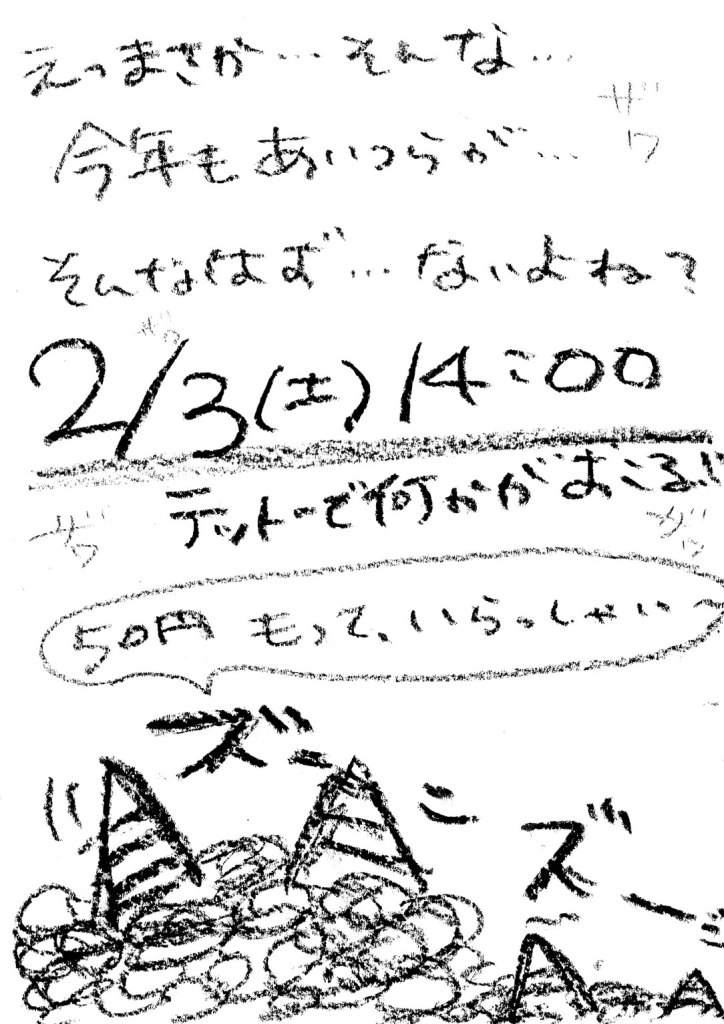 えっまさか…そんな…
ザワ
今年もあいつらが…
そんなはず…ないよね?
ザワ
2/3(土)14:00
テットーで何かがおこる!!
ザワ
ザワ
50円もって、いらっしゃい〜
ズーン
ズーン